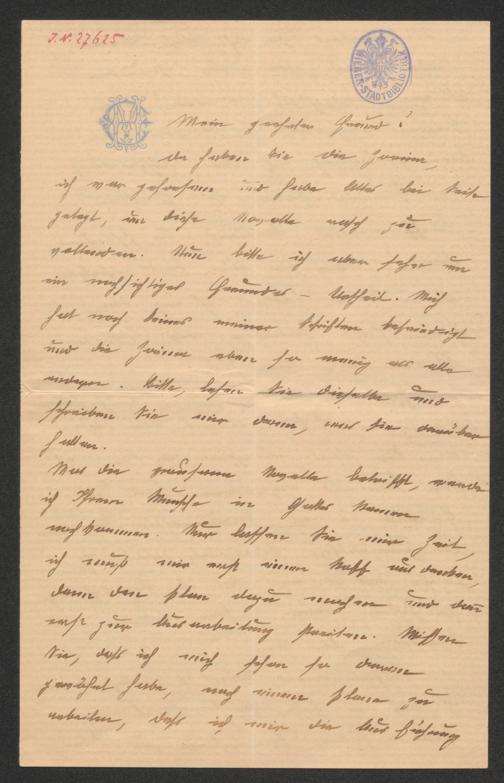 J.N. 27625
WIENER-STADTBIBLIOTHEK
Mein geehrter Freund!
da haben Sie die Hanina,
ich war gehorsam und habe Alles bei Seite
gelegt, um diese Novelle rasch zu
vollenden. Nun bitte ich aber sehr um
ein nachsichtiges Freundes-Urtheil. Mich
hat noch keines meiner Schriften befriedigt
und die Hanina eben so wenig als alle
anderen. Bitte, lesen Sie dieselbe und
schreiben Sie mir dann, was Sie darüber
halten.
Was die grausame Novelle betrifft, werde
ich Ihrem Wunsche in Gottes Namen
nachkommen. Nur lassen Sie mir Zeit,
ich muß mir erst einen Stoff ausdenken,
dann den Plan dazu machen und dann
erst zur Ausarbeitung schreiten. Wissen
Sie, daß ich mich schon so daran
gewöhnt habe, nach einem Plane zu
arbeiten, daß ich mir die Ausführung